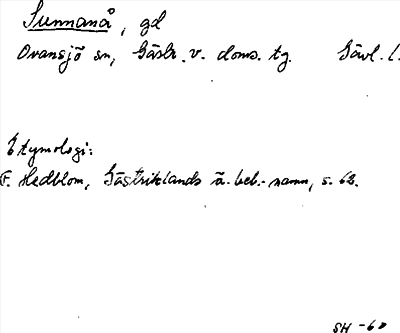 Sunnanå, gd
Ovansjö sn, Gästr. v. doms. tg. Gävl. l.
Etymologi:
F. Hedblom, Gästriklands ä. beb.-namn, s. 63.
SH -60